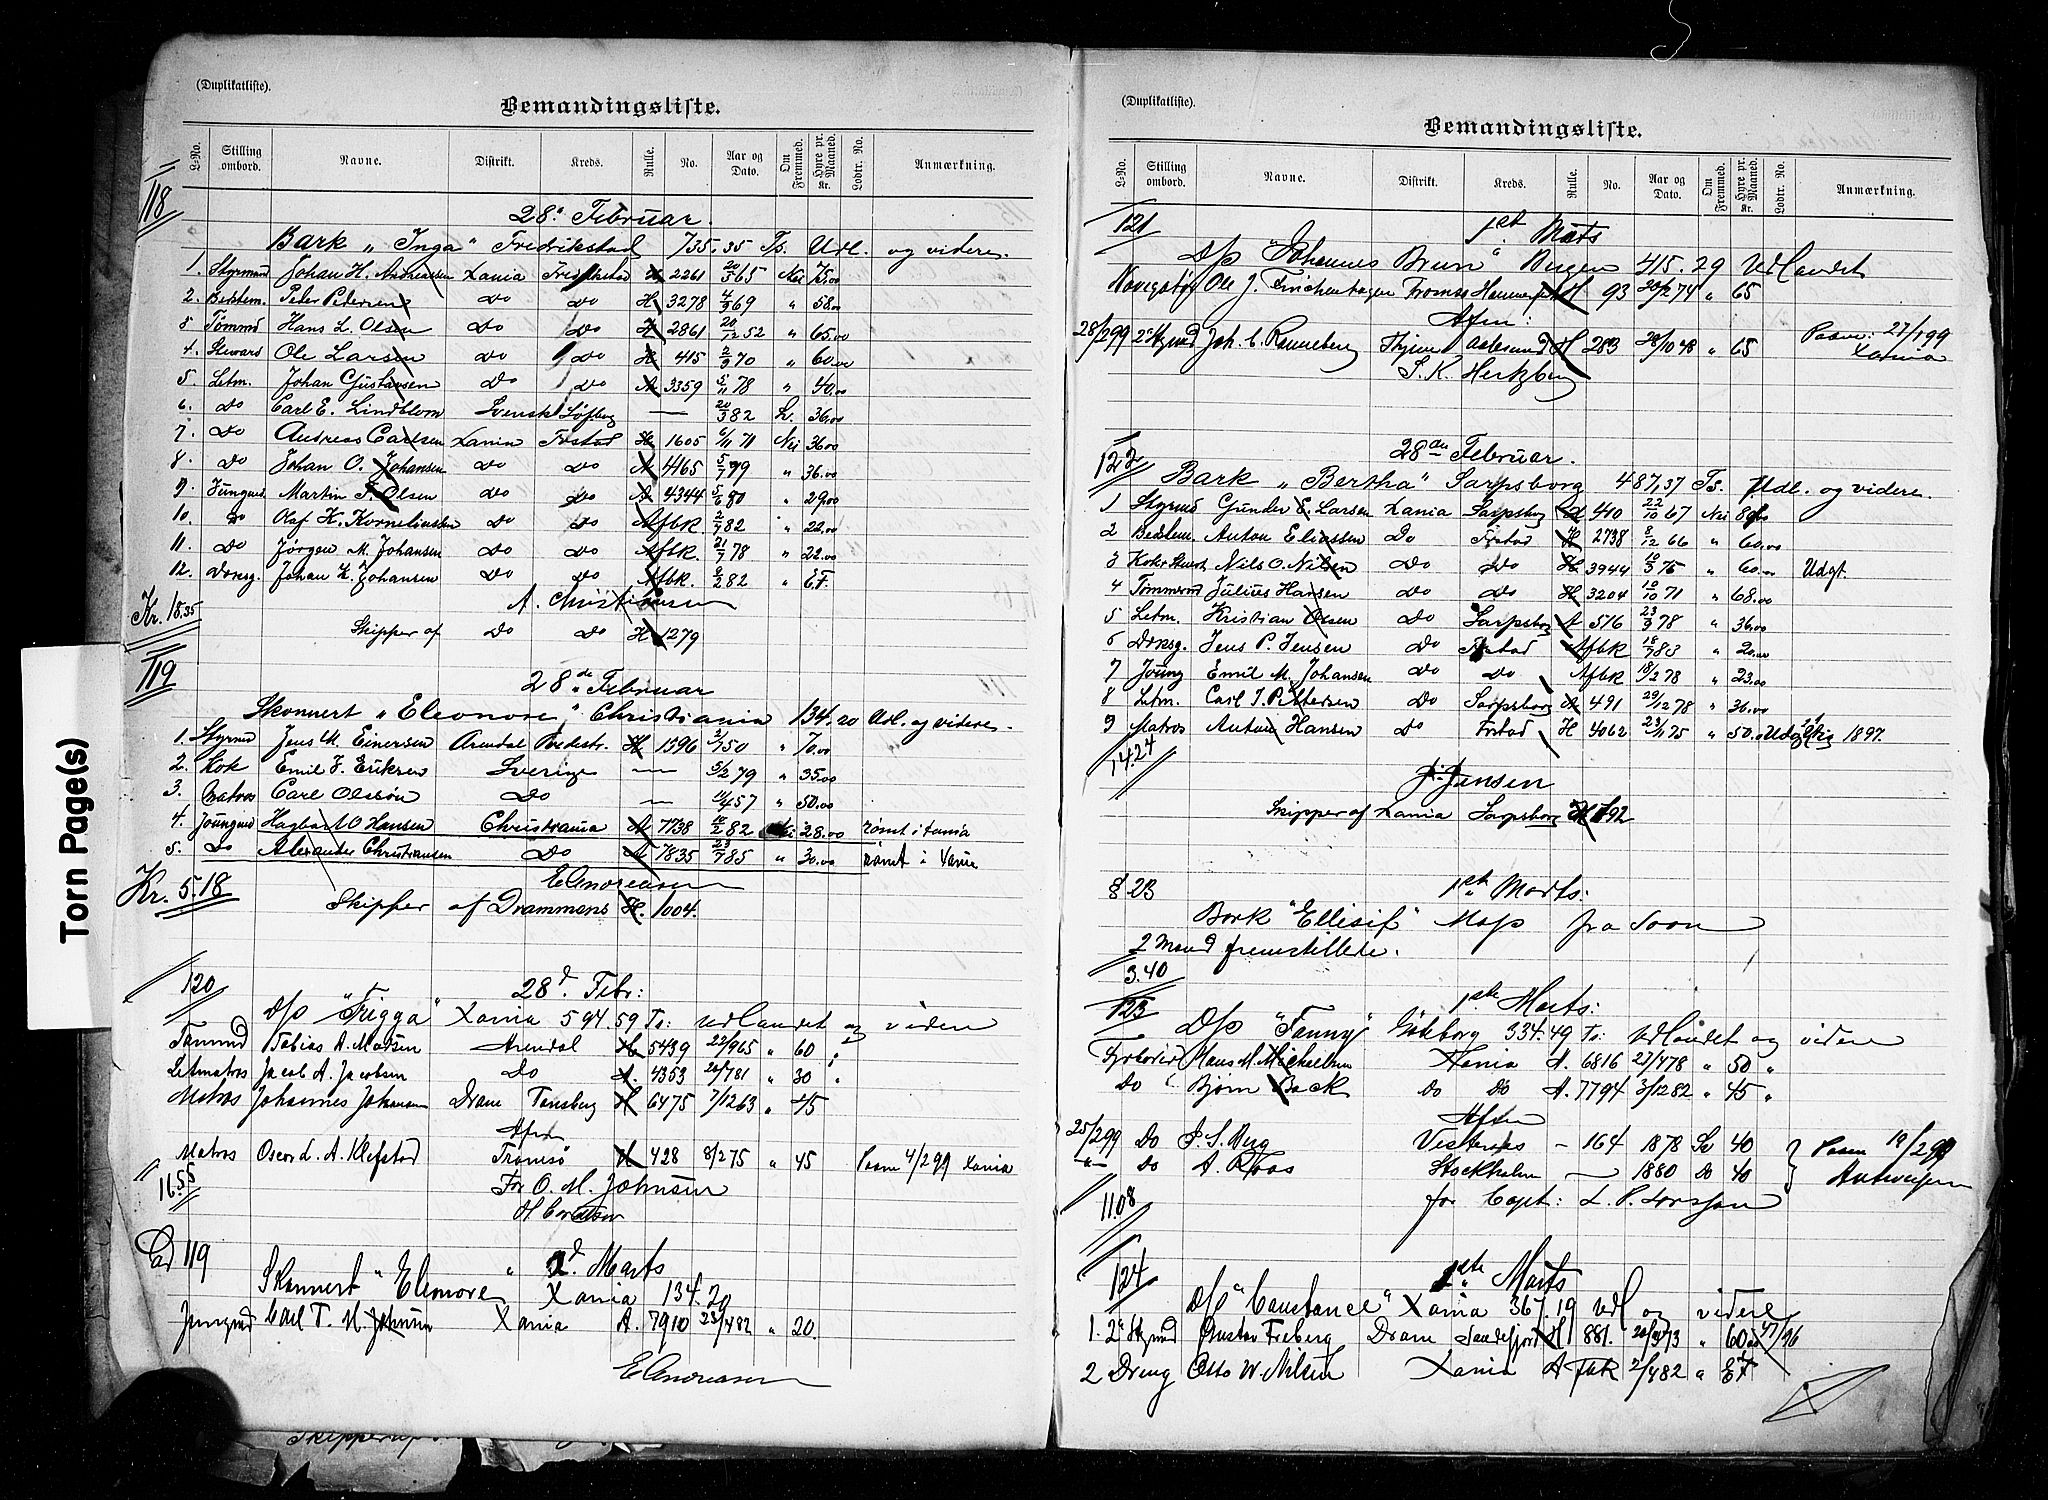 (Duplikatliste).
Bemandingsliste.
L-No. Stilling ombord. Navne. Distrikt. Kreds. Rulle. No. Aar og Dato. Om Fremmed. Hyre pr. Maaned. Kr. Lodtr. No. Anmærkning.
118
28de Februar.
Bark "Inga" Fredrikstad 735,35 Ts. Udl. og videre.
1. Styrmd Johan H. Andreassen Xania Fredrikstad H 2261 20/3 65 Nei 75.00
2. Bedstem. Peder Pedersen Do Do H 3278 4/9 69 " 58.00
3 Tømmd Hans L. Olsen Do Do H 2861 20/12 52 " 65.00
4. Steward Ole Larsen Do Do H 415 2/9 70 " 60.00
5. Letm. Johan Gustavsen Do Do A 3359 5/11 78 " 40.00
6. Do Carl E. Lindblom Svensk — 20/3 82 Sv. 36.00
7. Do Andreas Carlsen Xania Frstad H 1605 6/11 71 Nei 36.00
8. Do Johan O. Johansen Do Do A 4465 5/7 79 " 36.00
9. Jungmd Martin Olsen Do Do A 4344 5/6 80 " 29.00
10. Do Olaf K. Korneliussen Do Do Afbk. 2/7 82 " 22.00
11. Do Jørgen M. Johansen Do Do Afbk. 21/7 78 " 22.00
12. Dreng. Johan K. Johansen Do Do Afbk. 8/2 82 " E.F.
A. Christiansen
Kr. 18.35
Skipper af Do Do H 1279
119
28de Februar
Skonnert "Eleonore", Christiania 134.20 Udl. og videre.
1. Styrmd Jens M. Einersen Arendal H 1596 2/7 50 " 70.00
2. Kok Emil J. Eriksen Sverige — 5/2 79 " 35.00
3. Matros Carl Olssøn Do — 11/4 57 " 50.00
4. Joungmd Hagbart O Hansen Christiania A 7738 18/2 82 Nei 28.00 rømt i Xania
5. Do Alexander Christiansen Do A 7835 23/7 85 " 30.00 rømt i Xania
E Andreasen
Kr. 5.18
Skipper af Drammens H. 1004.
120
28d. Febr:
D/s "Frigga" Xania 594.59 Ts: Udlandet og viden
Tømmd Tobias A. Madsen Arendal H 5439 22/9 65 " 60 "
Letmatros Jacob A. Jacobsen Do A. 4353 20/7 81 " 30 "
Matros Johannes Johansen Dram Tønsberg H 6475 7/12 63 " 45
Afm
Matros Oscar L. A. Klefstad Tromsø H 428 8/2 75 " 45 Pasm 4/2 99 Xania
16.55
For O. M. Johnsen
Ad 119
2d. Marts
Skonnert "Eleonore" Xania 134.20
Jungmd Carl T. M. Johnsen Xania A. 7910 23/4 82 " 20.
E Andreasen
(Duplikatliste).
Bemandingsliste.
L-No. Stilling ombord. Navne. Distrikt. Kreds. Rulle. No. Aar og Dato. Om Fremmed. Hyre pr. Maaned. Kr. Lodtr. No. Anmærkning.
121
1ste Marts
D/s "Johannes Brun" Bergen 415.29 Udlandet
Ole J. Finckenhagen Tromsø Hammerfest H 93 20/2 74 " 65
Afm:
28/2 99 2 Styrmd Joh. C. Ronneberg Aalesund H 283 28/10 48 " 65 Pasm: 27/1 99 Xania
S. K. Hertzberg
122
28de Februar.
Bark "Bertha" Sarpsborg 487,37 Ts. Udl. og videre.
1 Styrmd Gunder E. Larsen Xania Sarpsborg A 410 22/10 67 Nei 80.00
2 Bedstem. Anton Eliassen Do Frstad H 2738 8/12 66 " 60.00
3 Kok & Stuert Nils O. Nilsen Do Do H 3944 10/3 75 " 60.00 Udgt.
4 Tømmermd Julius Hansen Do Do H 3204 10/10 71 " 68.00
5 Letm. Kristian Olsen Do Sarpsborg A 576 23/9 78 " 36.00
6 Dreng. Jens P. Jensen Do Frstad Afbk 18/7 83 " 20.00
7 Joung Emil M. Johansen Do Do Afbk 18/2 78 " 23.00
8 Letm. Carl J. Pettersen Do Sarpsborg A 491 29/12 78 " 36.00
9 Matros Anton Hansen Do Frstad H 4062 23/11 75 " 50.00 1897.
14.24
J. Jensen
Skipper af Xania Sarpsborg H 192
§ 23
1ste Marts:
Bark "Ellisif" Moss fra Soon
2 Mand fremstillede.
3.40
123
1ste Marts:
D/s "Fanny" Göteborg 334.49 Ts: Udlandet og viden
Fyrbøder Hans M. Michelsen Xania A. 6816 27/4 78 " 50 "
Do Bjørn Back Do Do A. 7794 3/12 82 " 45 "
Afm
25/2 99 Do P. S. Berg Vesterås - 164 1878 Sv 40
" Do A. Roos Stockholm — 1880 Do 40
Pasm 19/2 99 Antwerpen
11.08
for Capt: L. P. Larsson
124
1ste Marts
D/s "Constance" Xania 367.19 Udl og videre
1. 2 Styrmd Gustav Freberg Dram Sandefjord H 881. 73 " 60.00
2 Dreng Otto W. Nilsen Xania A Fbk 2/4 82 " E F
Torn Page(s)